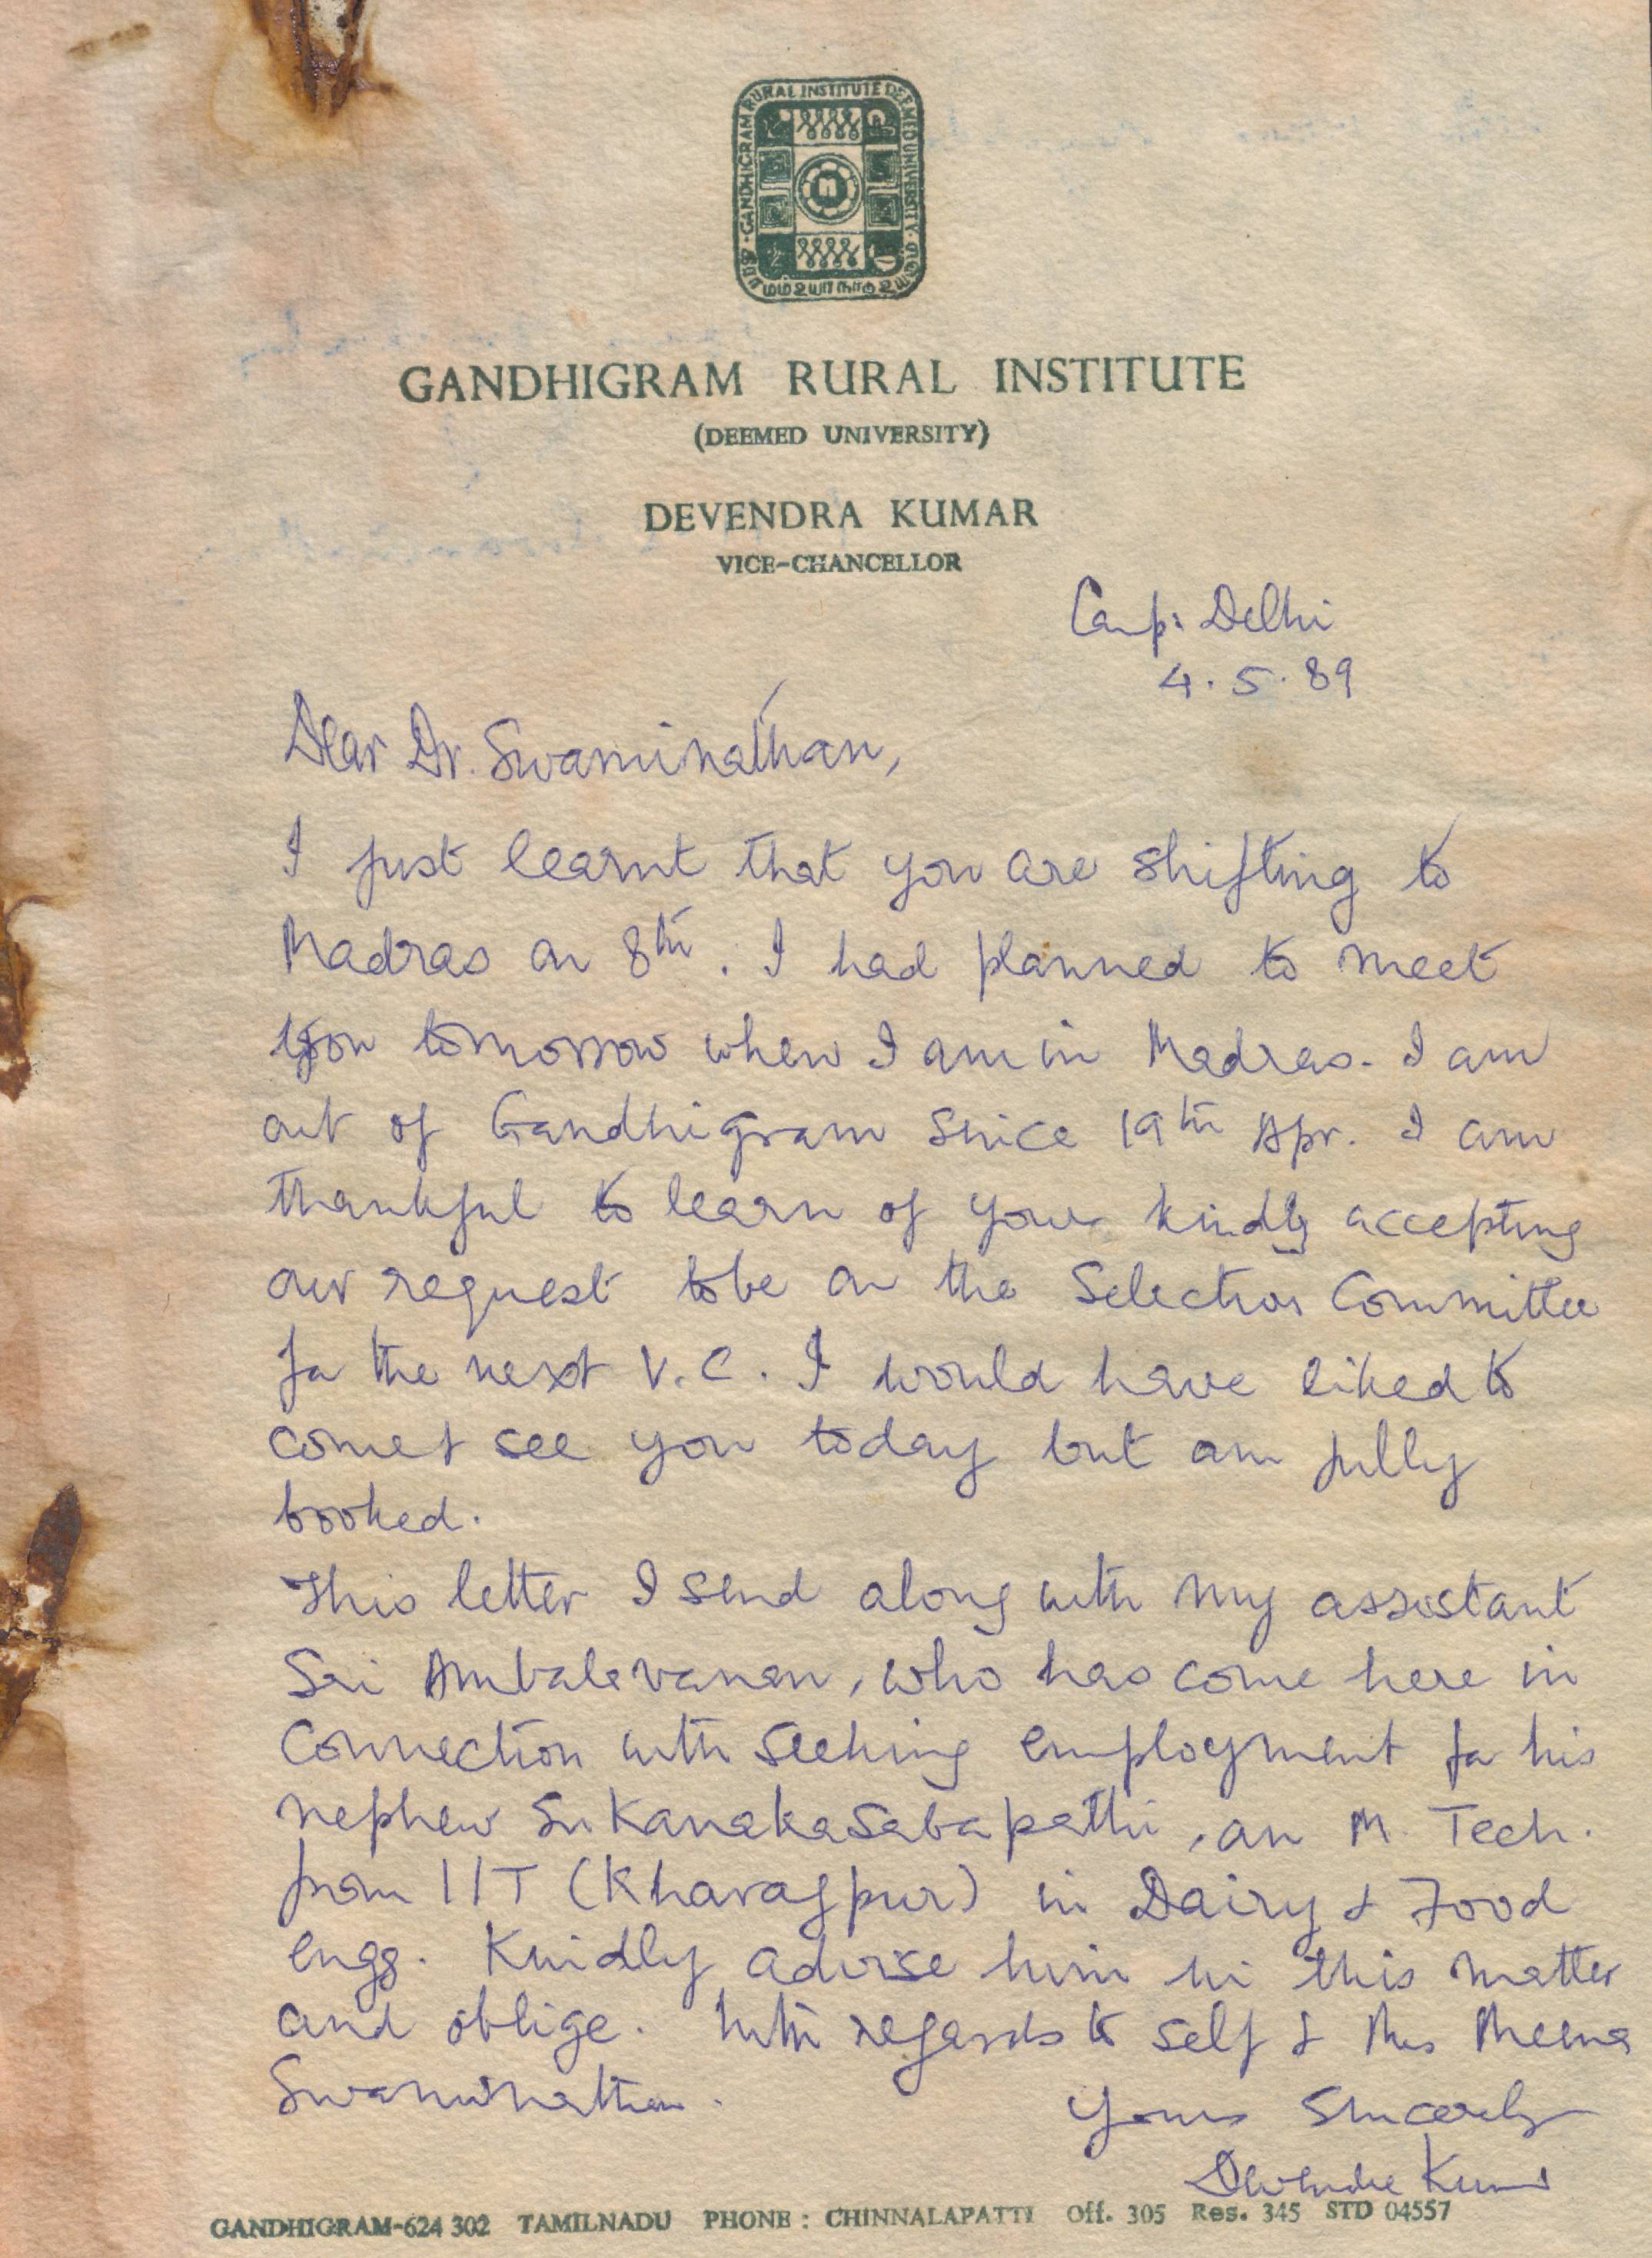 GANDHIGRAM RURAL INSTITUTE DEEMED UNIVERSITY
GANDHIGRAM RURAL INSTITUTE
(DEEMED UNIVERSITY)
DEVENDRA KUMAR
VICE-CHANCELLOR
Camp: Delhi
4.5.89
Dear Dr. Swaminathan,
I just learnt that you are shifting to
Madras on 8th. I had planned to meet
you tomorrow when I am in Madras. I am
out of Gandhigram since 19th Apr. I am
thankful to learn of your kindly accepting
our request to be on the Selection Committee
for the next V.C. I would have liked to
come & see you today but am fully
booked.
This letter I send along with my assistant
Sri Ambalavanan, who has come here in
connection with seeking employment for his
nephew Sri Kanakasabapathi, an M. Tech.
from IIT (Kharagpur) in Dairy & Food
engg. Kindly advise him in this matter
and oblige. With regards to self & Mrs Meena
Swaminathan.
Yours Sincerely
Devendra Kumar
GANDHIGRAM-624 302 TAMILNADU PHONE : CHINNALAPATTI Off. 305 Res. 345 STD 04557